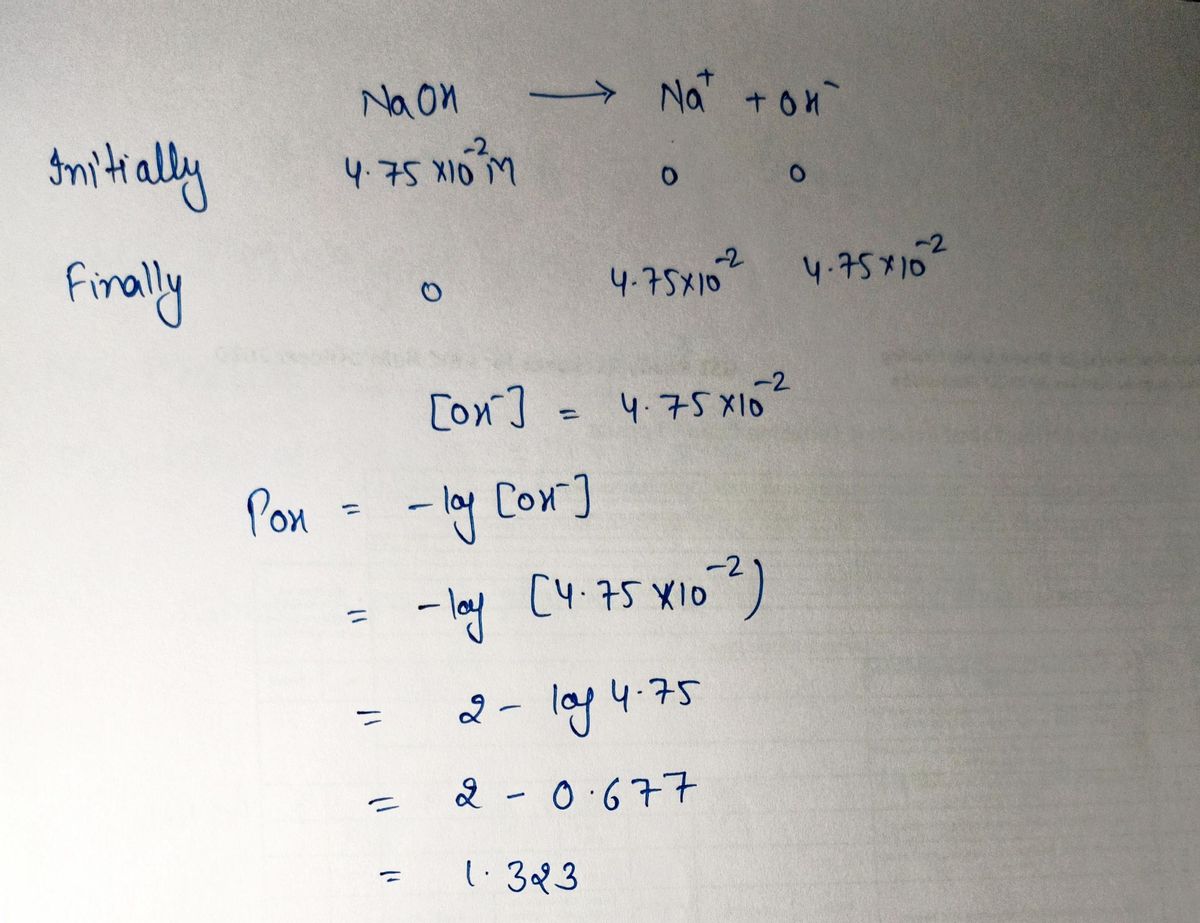 NaOH → Na⁺ + OH⁻
Initially 4.75 × 10⁻² M 0 0
Finally 0 4.75×10⁻² 4.75×10⁻²
[OH⁻] = 4.75 × 10⁻²
POH = - log [OH⁻]
= - log [4.75 × 10⁻²)
= 2 - log 4.75
= 2 - 0.677
= 1.323